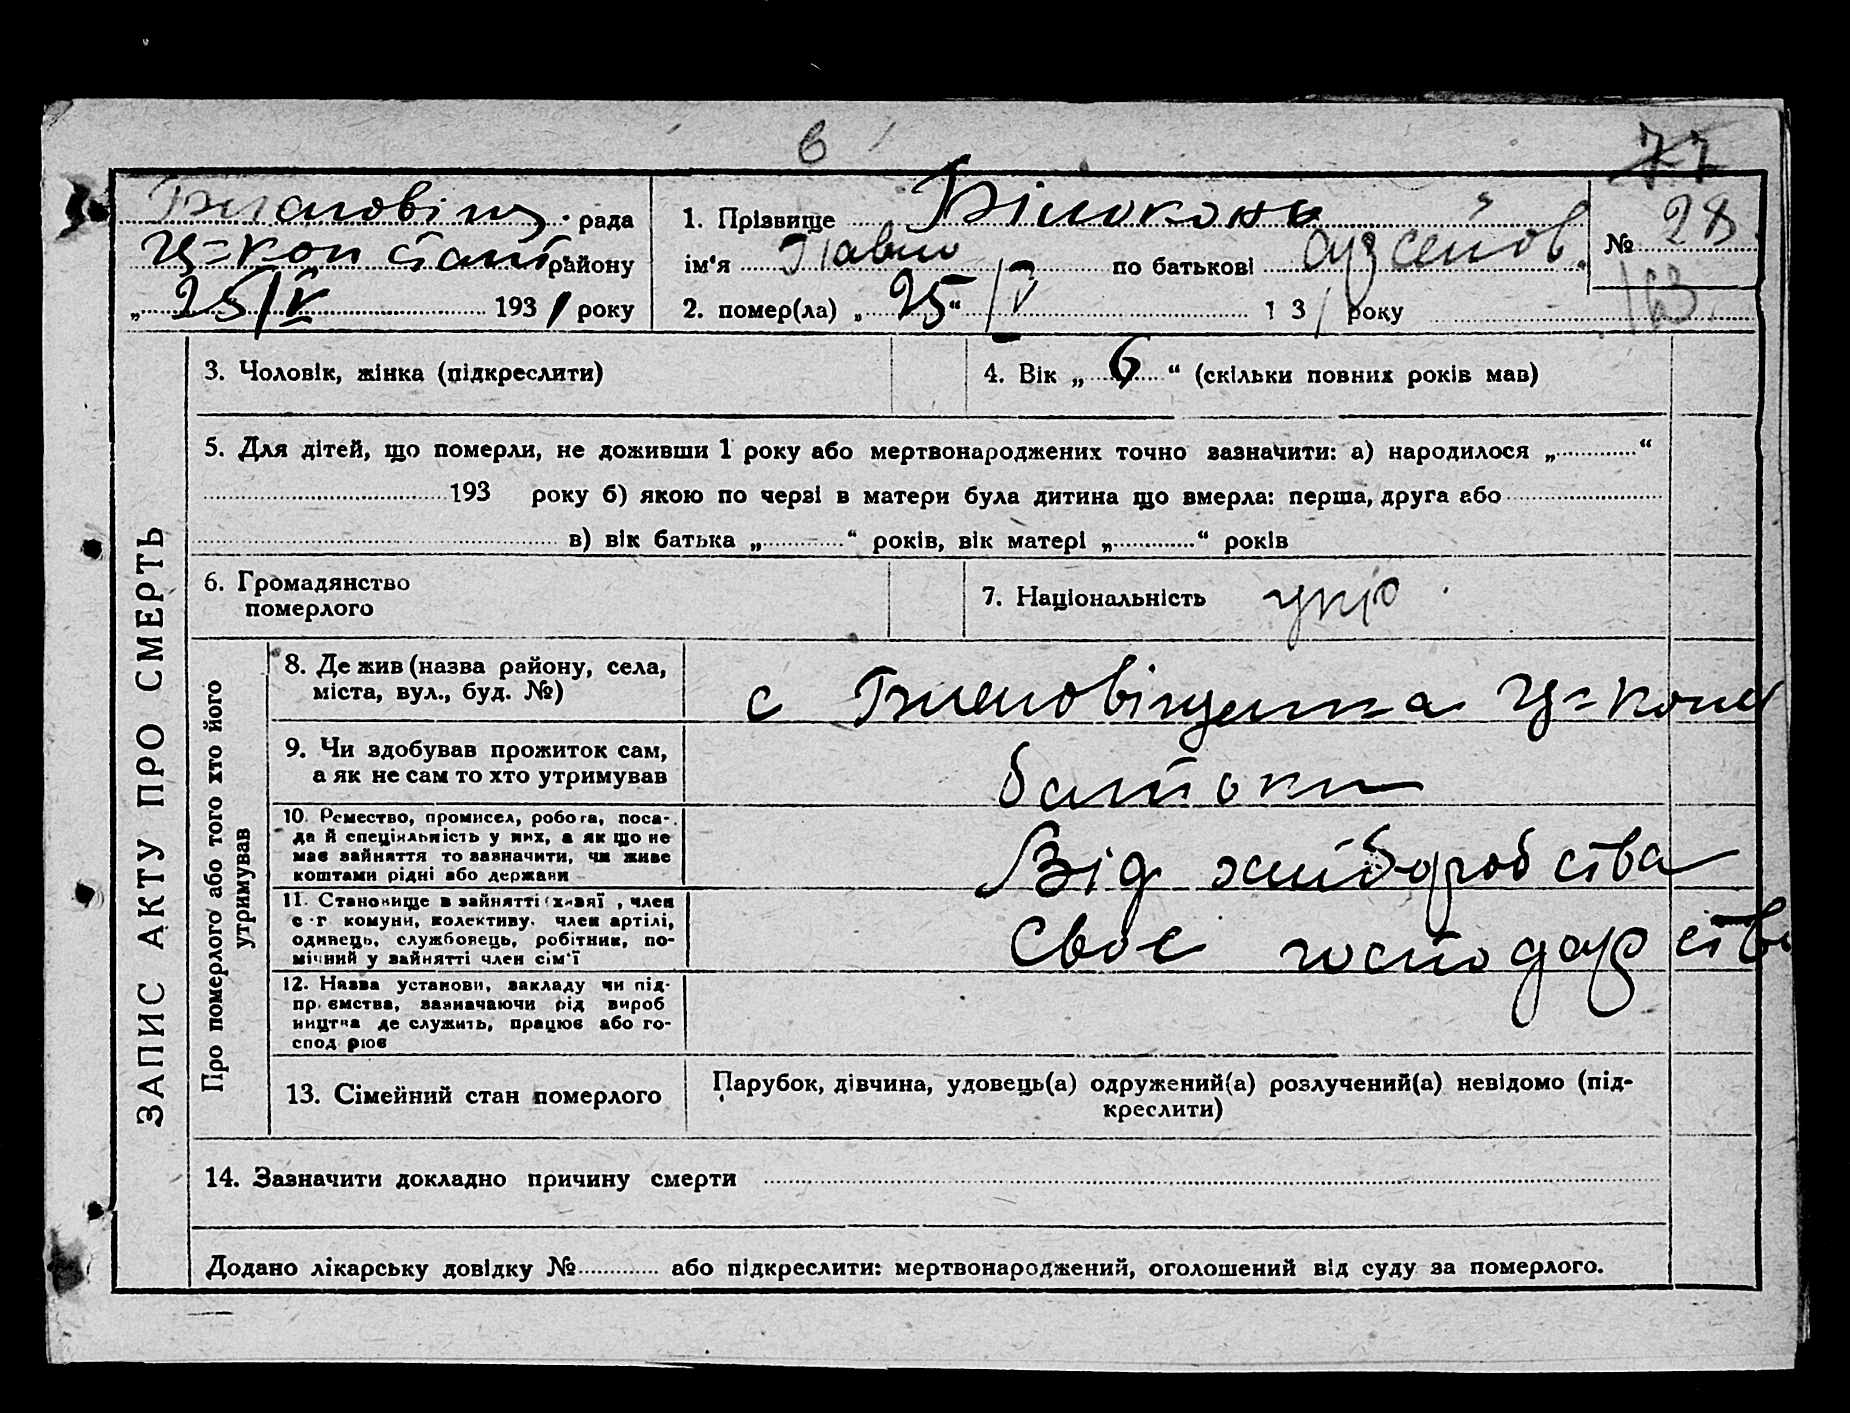 6
77
рада
району
„25/V 1931 року
1. Прізвище Білоконь
ім'я Павло по батькові
2. помер(ла) „25“ /V 1 3 / року
№ 28
163.
3. Чоловік, жінка (підкреслити)
4. Вік „6“ (скільки повних років мав)
5. Для дітей, що померли, не доживши 1 року або мертвонароджених точно зазначити: а) народилося „ “
193 року б) якою по черзі в матери була дитина що вмерла: перша, друга або
в) вік батька „ “ років, вік матері „ “ років
6. Громадянство
померлого
7. Національність укр
ЗАПИС АКТУ ПРО СМЕРТЬ
Про померлого або того хто його
утримував
8. Де жив (назва району, села,
міста, вул., буд. №)
с
9. Чи здобував прожиток сам,
а як не сам то хто утримував
батьки
10. Ремество, промисел, робота, поса-
да й спеціяльність у них, а як що не
має зайняття то зазначити, чи живе
коштами рідні або держави
Від хліборобства
11. Становище в зайнятті (хазяї, член
с-г комуни, колективу, член артілі,
одинець, службовець, робітник, по-
мічний у зайнятті член сім'ї
Своє господарство
12. Назва установи, закладу чи під-
приємства, зазначаючи рід вироб
ництва де служить, працює або го-
спод рює
13. Сімейний стан померлого
Парубок, дівчина, удовець(а) одружений(а) розлучений(а) невідомо (під-
креслити)
14. Зазначити докладно причину смерти
Додано лікарську довідку № або підкреслити: мертвонароджений, оголошений від суду за померлого.